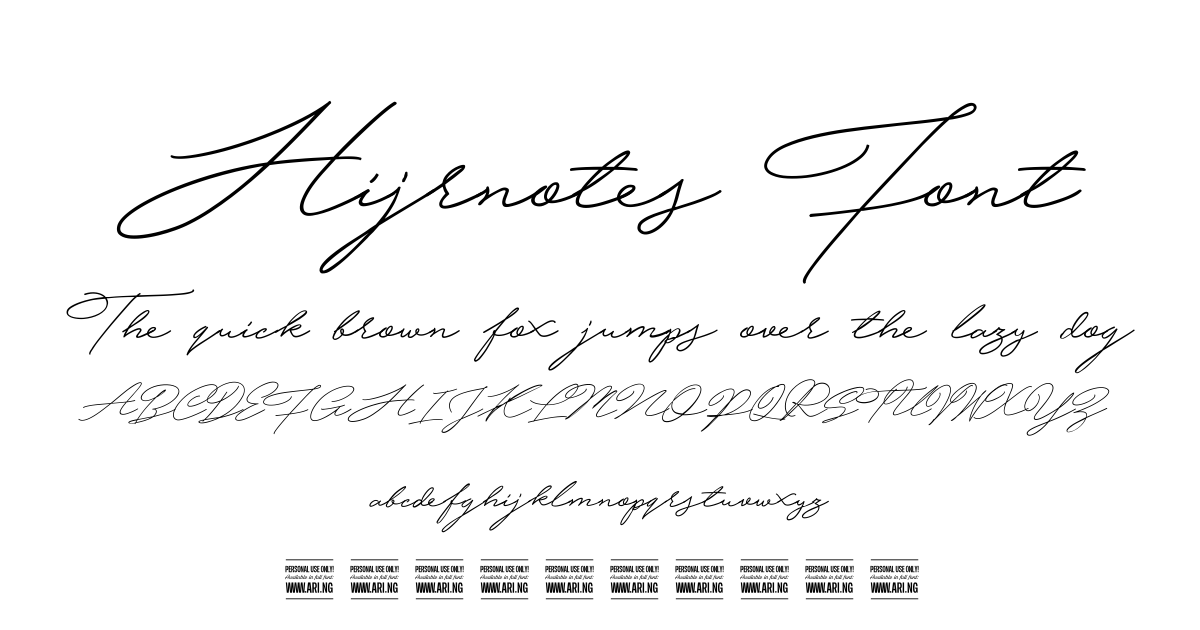 Hijrnotes Font
The quick brown fox jumps over the lazy dog
ABCDEFGHIJKLMNOPQRSTUVWXYZ
abcdefghijklmnopqrstuvwxyz
PERSONAL USE ONLY! PERSONAL USE ONLY! PERSONAL USE ONLY! PERSONAL USE ONLY! PERSONAL USE ONLY! PERSONAL USE ONLY! PERSONAL USE ONLY! PERSONAL USE ONLY! PERSONAL USE ONLY! PERSONAL USE ONLY!
Available in full font: Available in full font: Available in full font: Available in full font: Available in full font: Available in full font: Available in full font: Available in full font: Available in full font: Available in full font:
WWW.ARI.NG WWW.ARI.NG WWW.ARI.NG WWW.ARI.NG WWW.ARI.NG WWW.ARI.NG WWW.ARI.NG WWW.ARI.NG WWW.ARI.NG WWW.ARI.NG